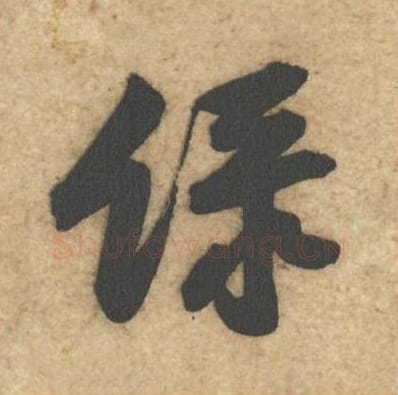 保
Shufawang.cn